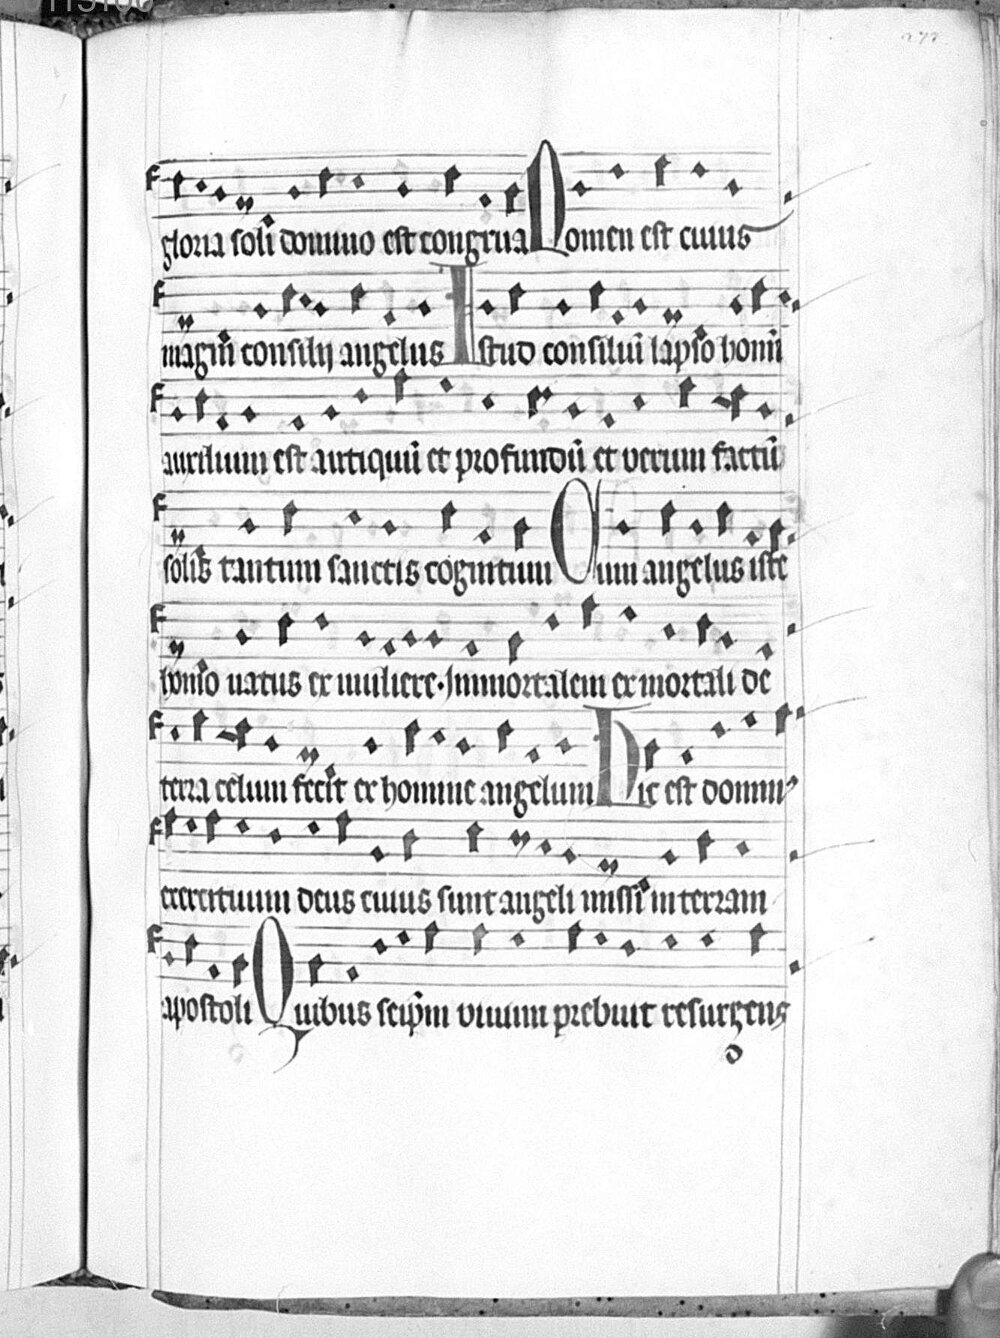 gloria soli domino est congrua Nomen est cuius
magnū consilij angelus Istud consiliū lapso homini
auxilium est antiquū et profundū et verum factū
solis tantum sanctis cognitum Cum angelus iste
homo natus ex muliere. Immortalem ex mortali de
terra celum fecit ex homine angelum Hic est dominꝰ
exercituum deus cuius sunt angeli missi in terram
apostoli Quibus seip̄m viuum prebuit resurgens